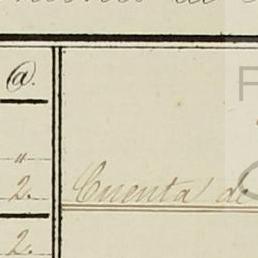 @.
"
2. Cuenta de
2.